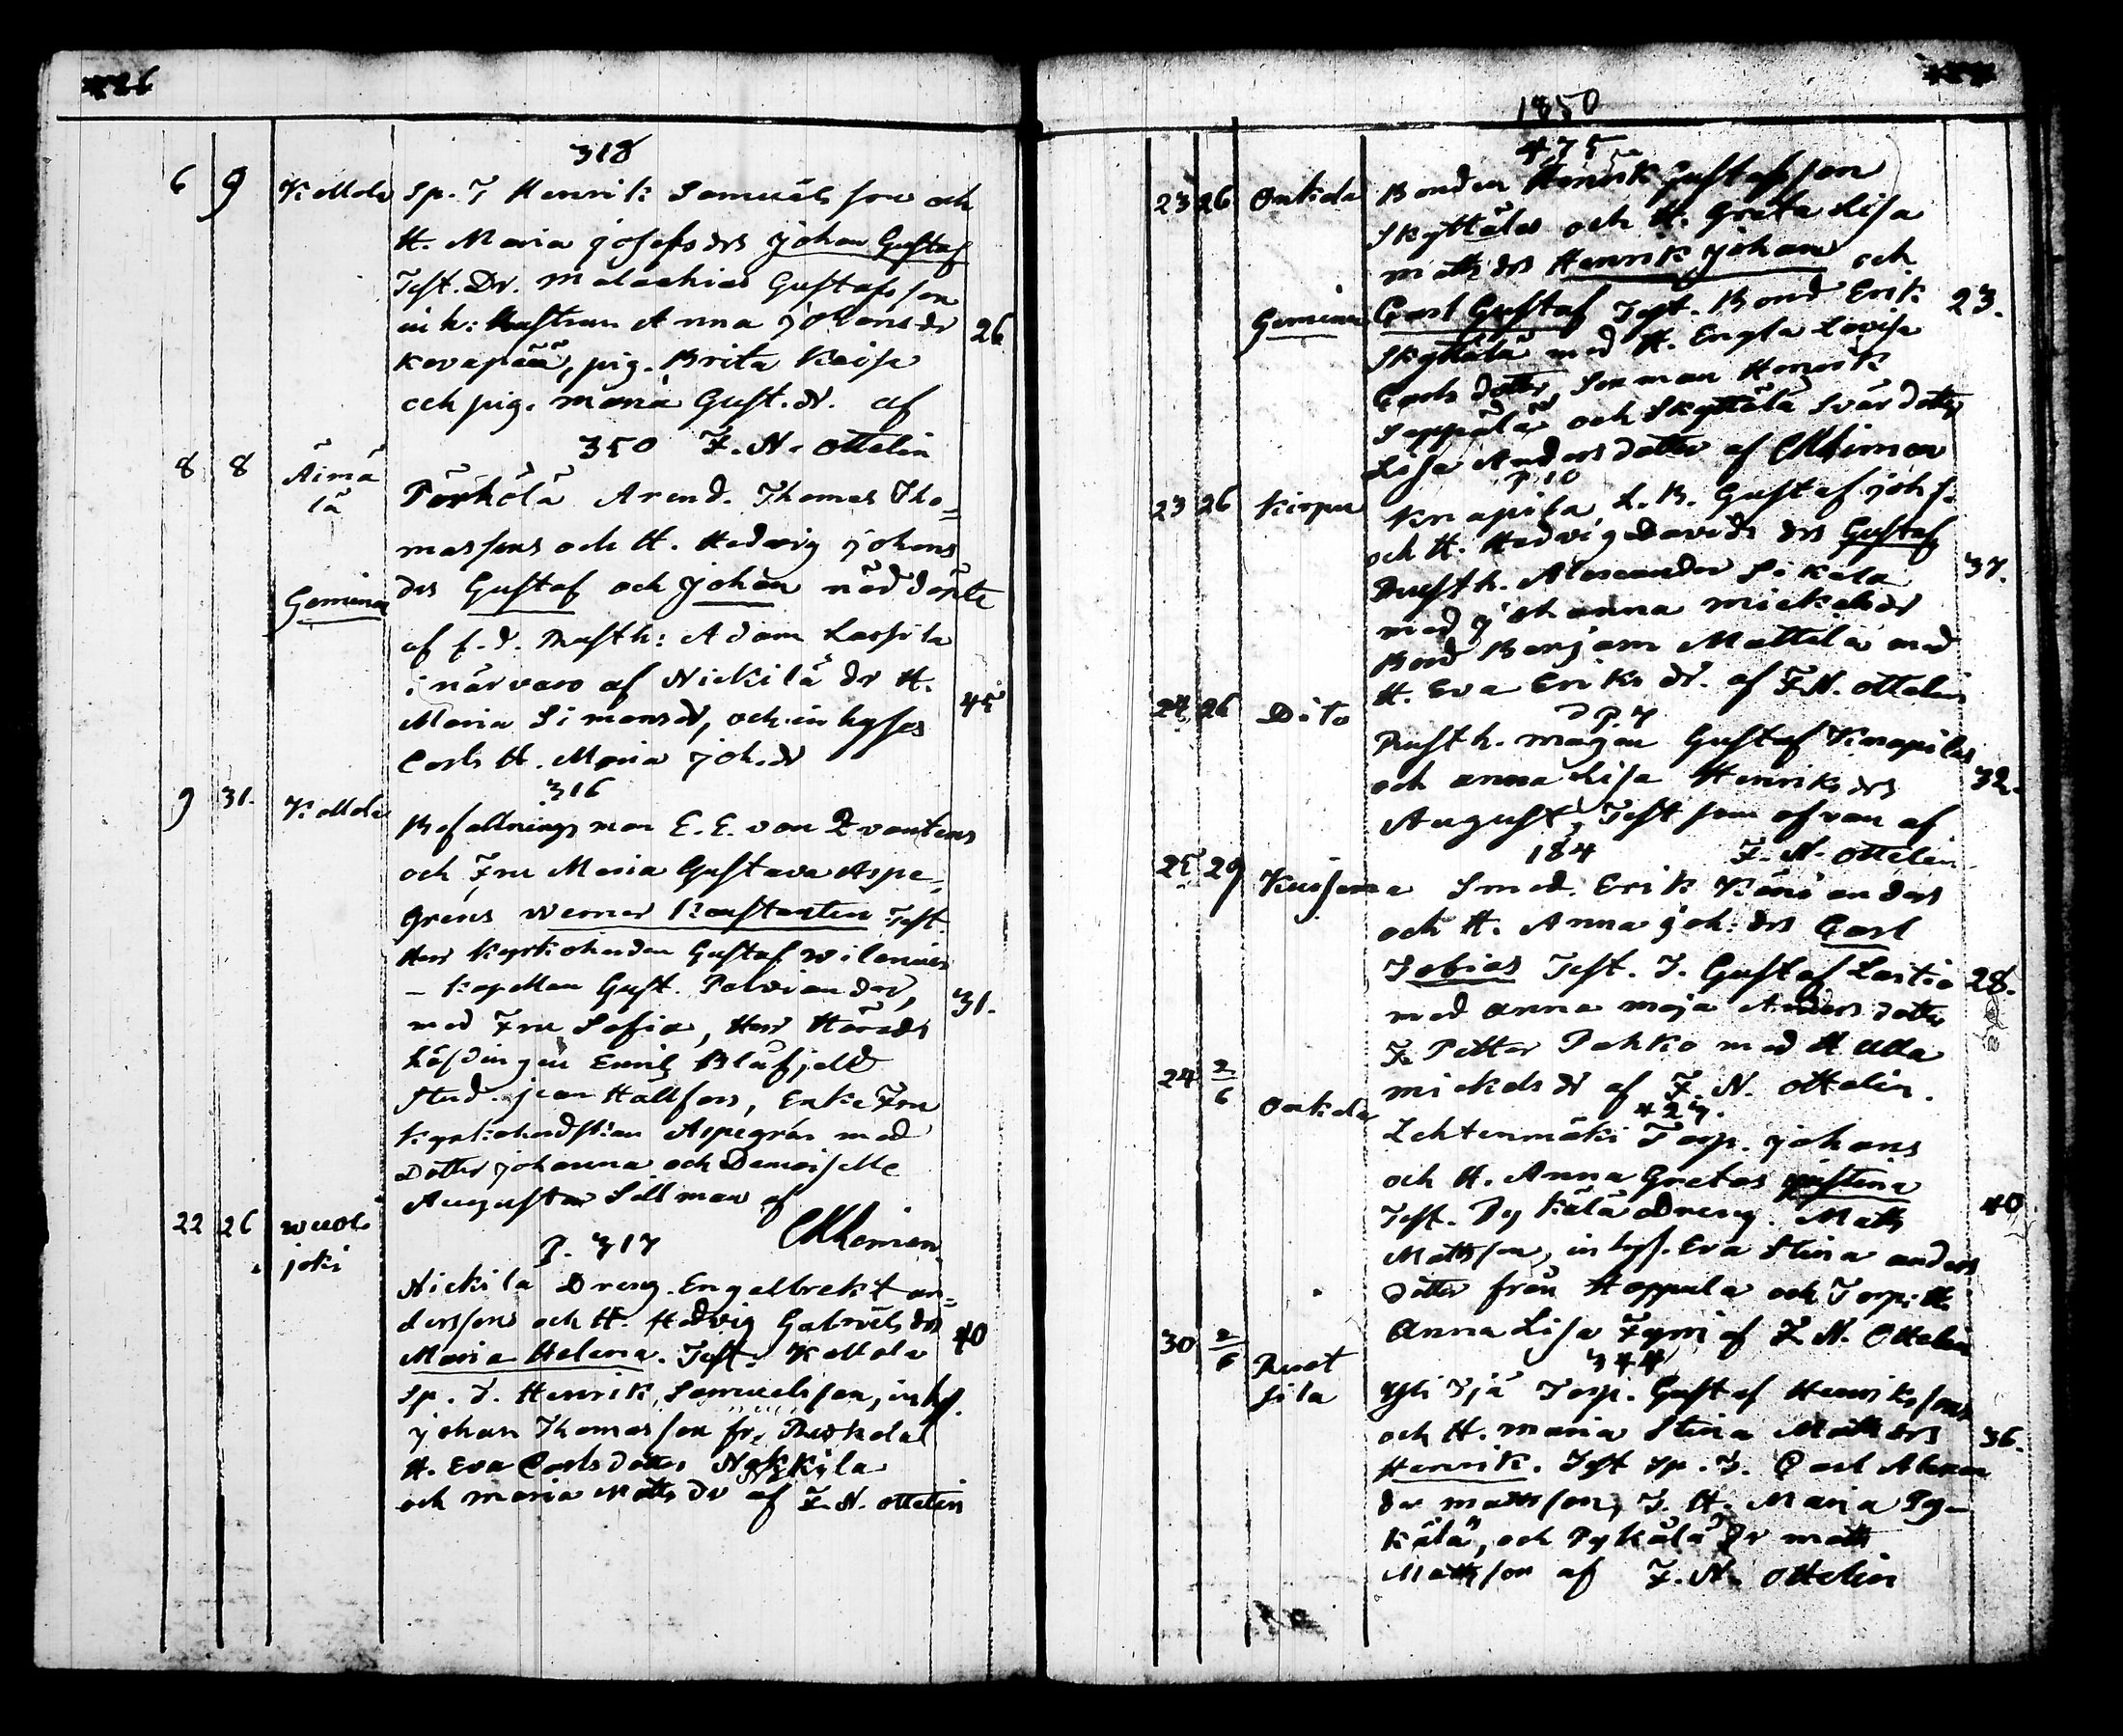 426
318
6 9 Kollola Sp. T Henrik Samuels son och
H. Maria Josefs drs Johan Gustaf
Test. Dr. Malachias Gustafsson
inh: Hustrun Anna Johansdr
Kovapää, pig. Brita Kaisa 26
och pig. Maria Gust. dr. af
350 F. N. Ottelin
8 8 Äimä
lä Pörhölä Arend. Thomas Tho=
massons och H. Hedvig Johans
Gemina drs Gustaf och Johan nöddöpte
af f.d. Rusth: Adam Lassila
i närvaro af Nickilä dr H.
Maria Simonsdr, och inhyses 45
Carls H. Maria Joh.dr
316
9 31. Kollola Befallningsman E. E. von Qvantens
och Fru Maria Gustava Aspe
grens Werner Konstantin Test.
Herr Kyrkoherden Gustaf Wilenius
— Kapellan Gust. Polviander, 31.
med Fru Sofia, Herr Härads
höfdingen Emil Blåfjeld
Stud. Jean Hallfors, Enke Fru
Kyrkoherdskan Aspegrén med
Dotter Johanna och Demoiselle
Augusta Sillman af
22 26 Wuol
joki P. 317
Nickila Dreng. Engelbrekt an=
derssons och H. Hedvig Gabriels drs
Maria Helena. Test. Kollola 40
Sp. T. Henrik Samuelsson, inhys.
Johan Thomasson fr.
H. Eva Carlsdotter
och Maria Matts dr af F. N. Ottelin
1850
475
23 26 Onkola Bonden Henrik Gustafsson
Skyttälas och H. Greta Lisa
Matts drs Henrik Johan och
Gemina Carl Gustaf Test. Bond Erik 23.
Skyttälä med H. Engla Lovisa
Carls dotter, Sonman Henrik
Seppälä och Skyttälä Svärdotter
Lisa Andersdotter af
P 10
23 26 Kirpu Knapila L. B. Gustaf Johs.
och H. Hedvig Davids drs Gustaf
Rusth. Alexander Sikila 37.
med Johanna Mickelsdr
Bond Benjam Mattila med
H. Eva Eriks dr. af F. N. Ottelin
P. 7
24 26 Dito Rusth. mågen Gustaf Knapilas
och Anna Lisa Henriks drs 32.
August, Test som ofvan af
184 F. N. Ottelin
25 29 Kuisema Smed. Erik
och H. Anna Joh: drs Carl
Tobias Test. T. Gustaf Lastio 28.
med Anna Maja Anders dotter
T. Petter Pahko med H Ulla
Mickels dr af F. N. Ottelin.
24 2/6 Onkola 427.
Lehtenmäki Torp. Johans
och H. Anna Gretas Justina
Test. Pykälä Dreng. Matts 40
Mattsson, inhys. Eva Stina Anders
dotter från Hoppula och Torp: H.
Anna Lisa Fyrri af F. N. Ottelin
344
30 2/6 Ruot
sila Torp. Gustaf Henrikssons
och H. Maria Stina Matts drs 36.
Henrik. Test Sp. T. Carl Alexan
der Mattsson, T. H. Maria Py-
kälä, och Pykälä Dr Matts
Mattsson af F. N. Ottelin